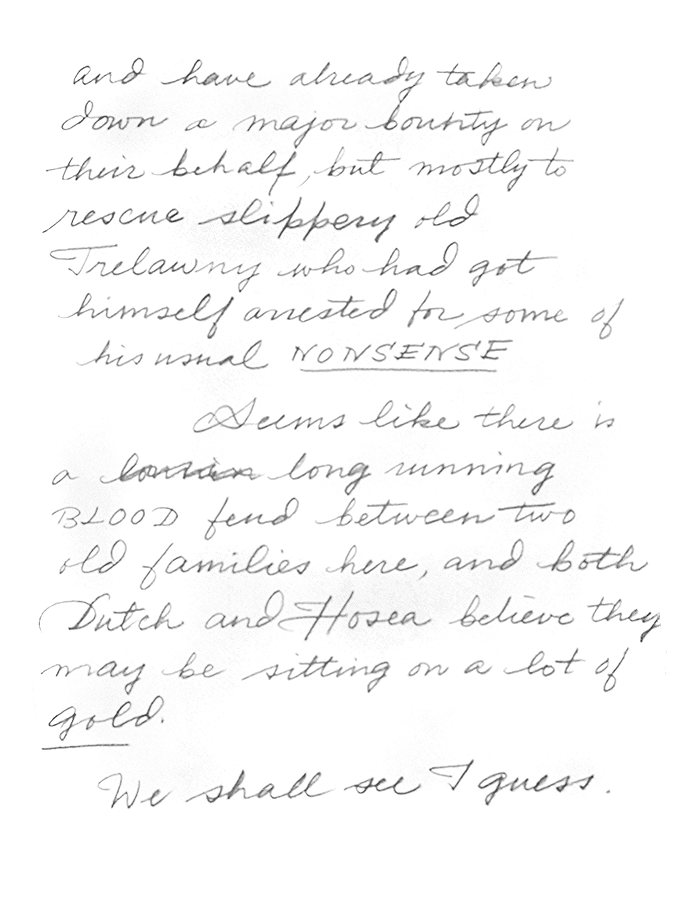 and have already taken
down a major bounty on
their behalf, but mostly to
rescue slippery old
Trelawny who had got
himself arrested for some of
his usual NONSENSE
Seems like there is
a long running
BLOOD feud between two
old families here, and both
Dutch and Hosea believe they
may be sitting on a lot of
gold.
We shall see I guess.